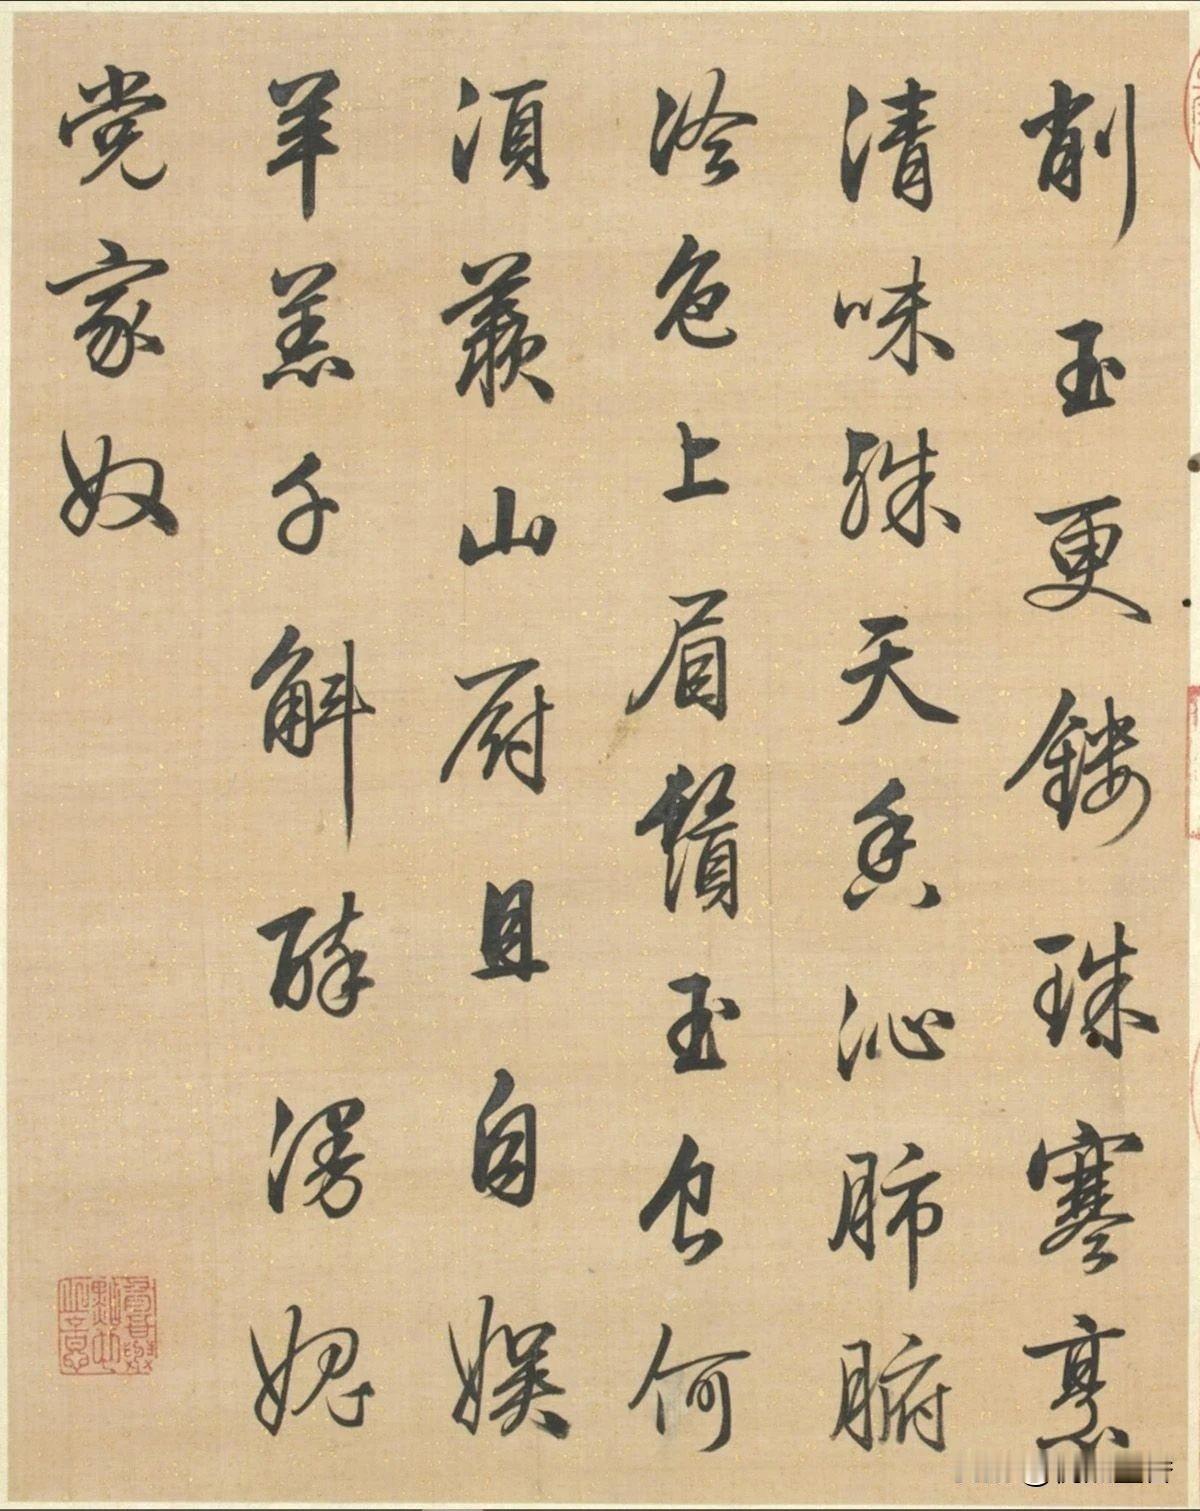 削玉更鏤珠寒烹
清味殊天香沁肺腑
冷色上眉鬚玉食何
湏羨山厨且自娱
羊羔千斛醉漫媿
党家奴